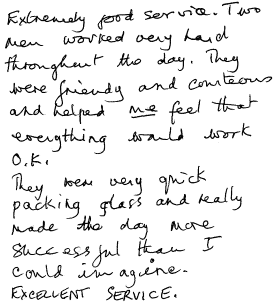 Extremely good service. Two
men worked very hard
throughout the day. They
were friendy and courteous
and helped me feel that
everything would work
O.K.
They were very quick
packing glass and really
made the day more
successful than I
could imagine.
EXCELLENT SERVICE.